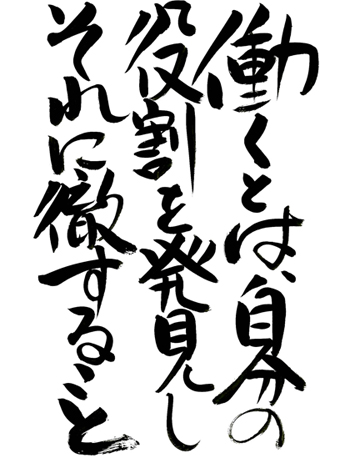 働くとは、自分の
役割を発見し
それに徹すること